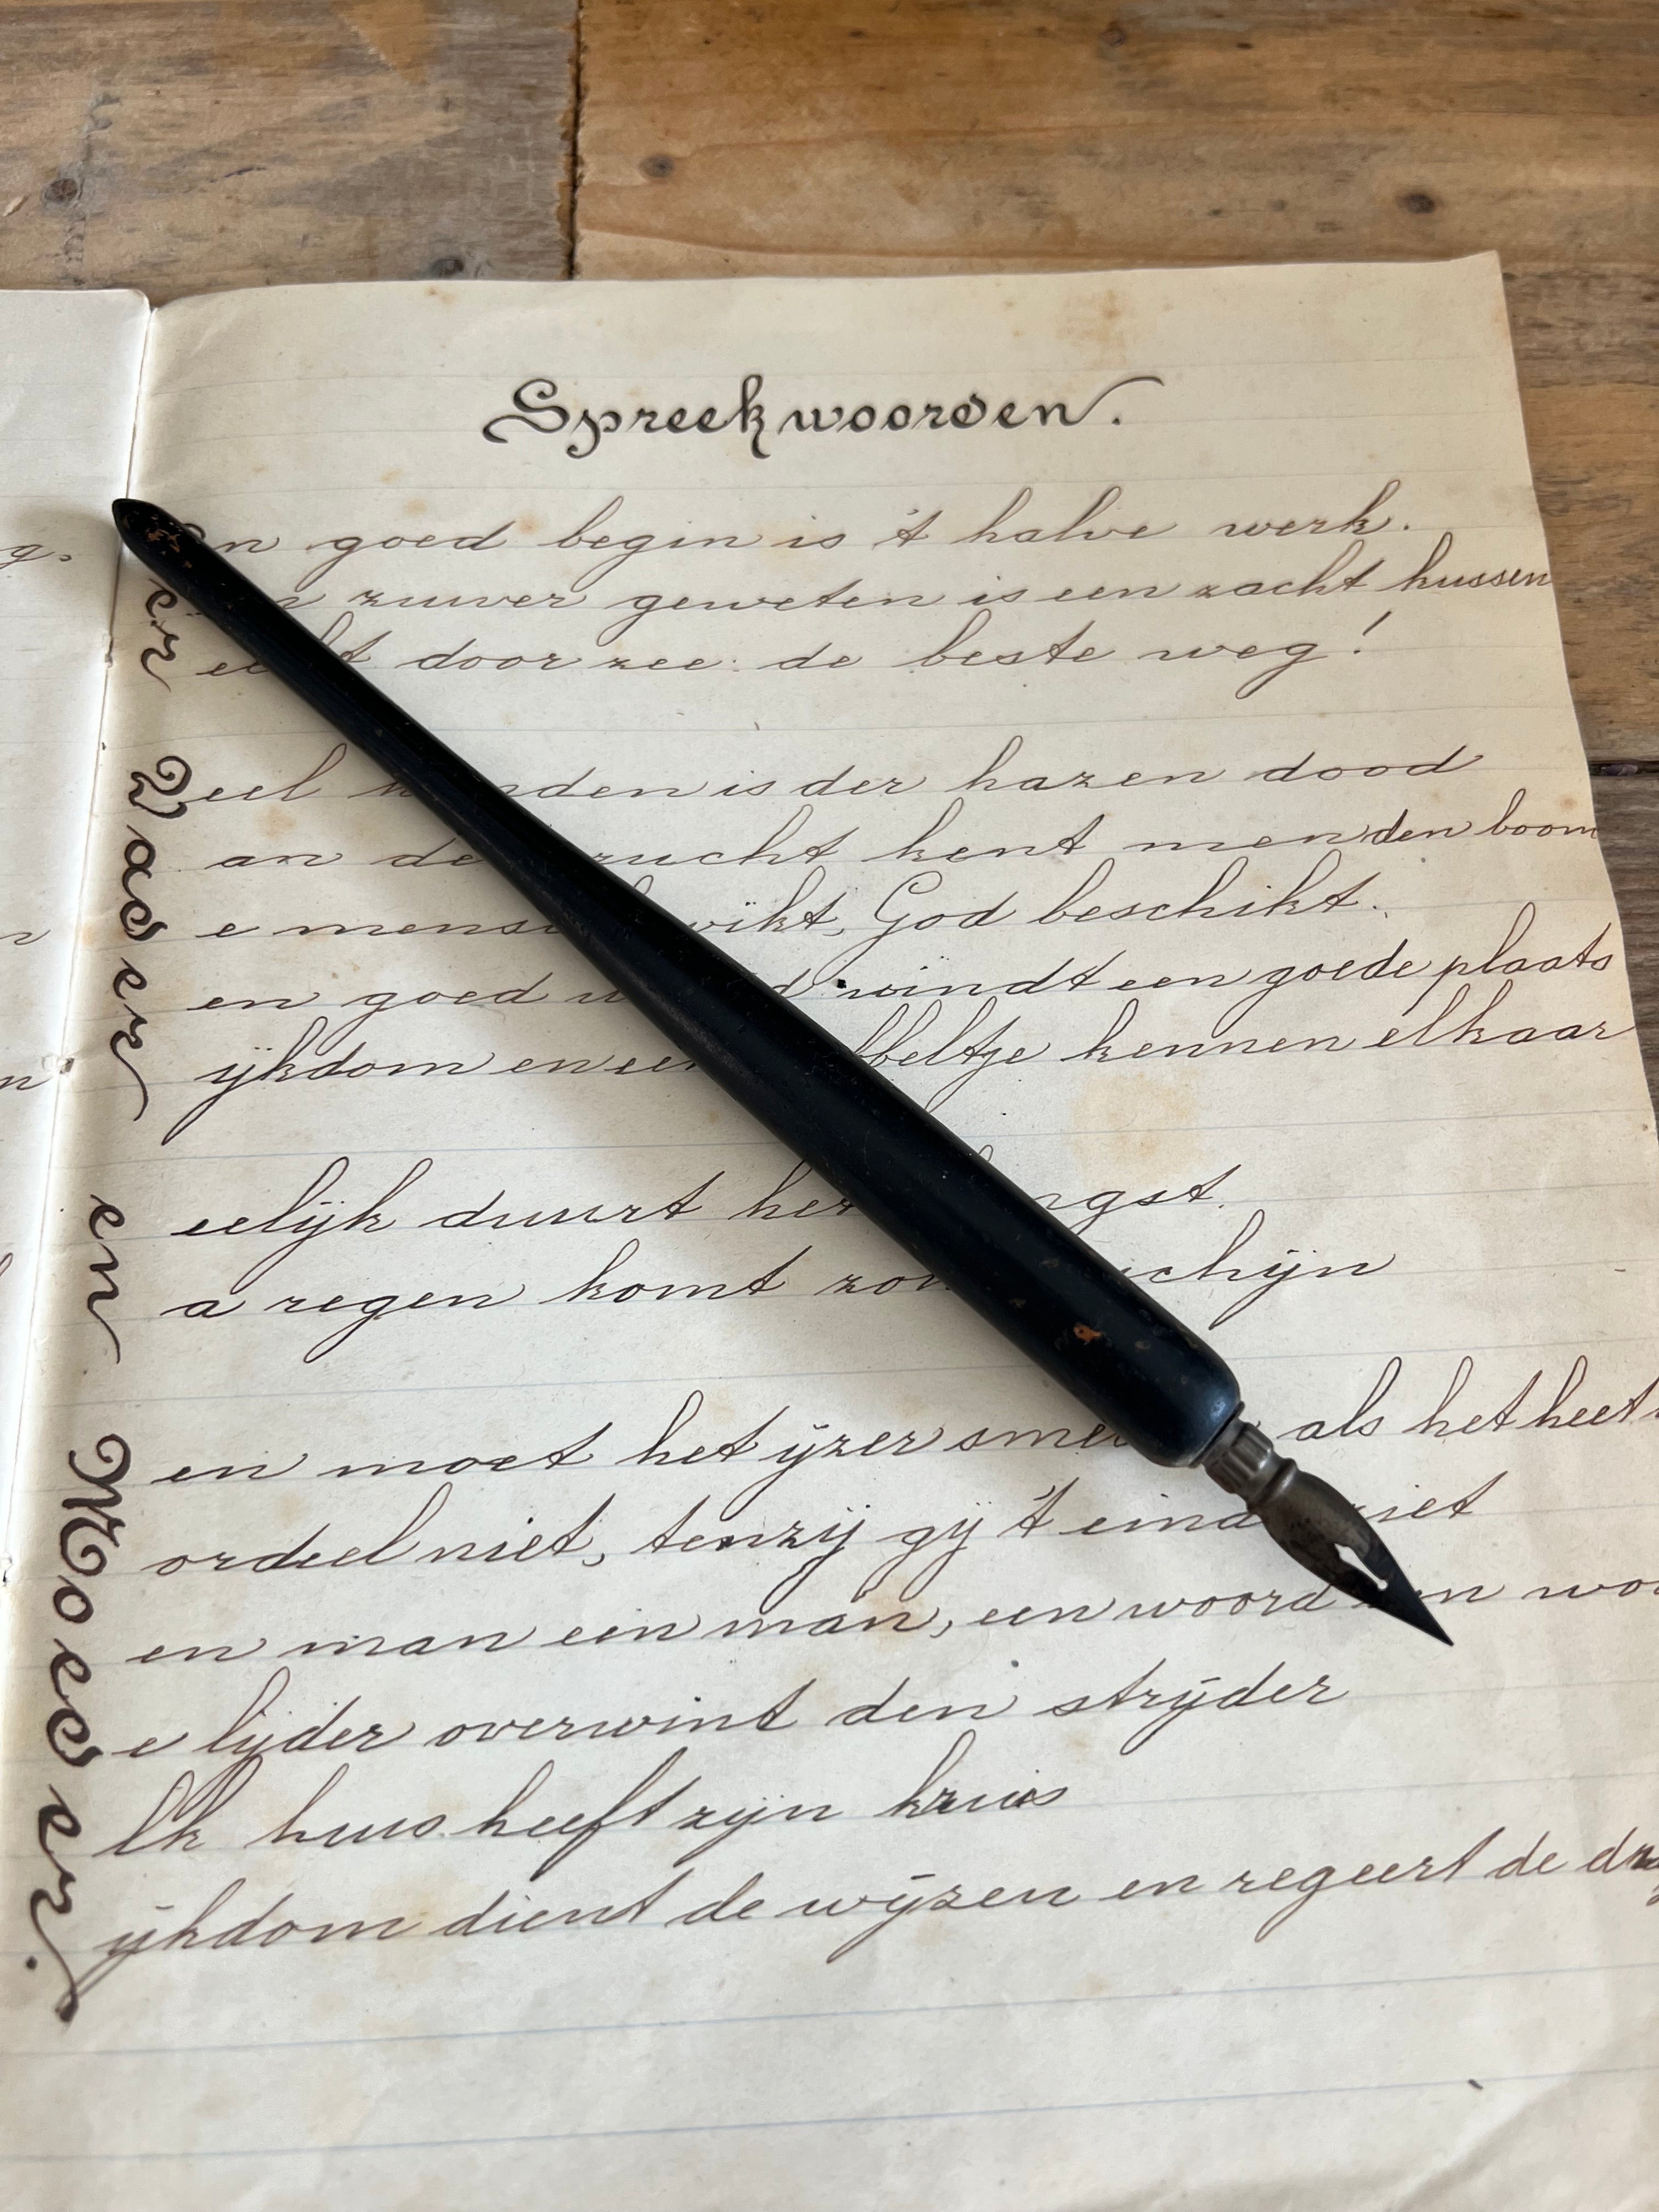 Spreekwoorden.
en goed begin is 't halve werk.
zuiver geweten is een zacht kussen
door zee: de beste weg!
eel is der hazen dood
an de kent men den boom
e wikt, God beschikt.
en goed windt een goede plaats
ijkdom en een kennen elkaar
eelijk duurt het
a regen komt
en moet het ijzer als het heet
ordeel niet, tenzij gij 't eind ziet
en man een man, een woord een
e lijder overwint den strijder
lk huis heeft zijn kruis
ijkdom dient de wijzen en regeert de
er Vader en Moeder.